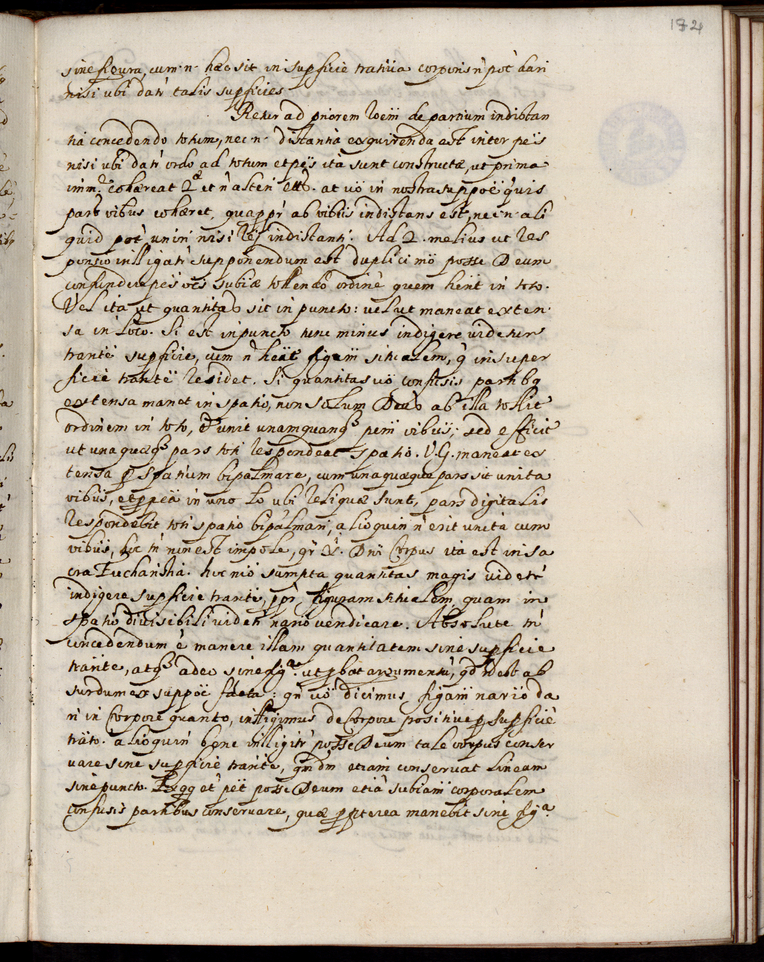 172
sine figura, cum n. hæc sit in supficie tratiua corporis n̄ pot dari
nisi ubi dat' talis supficies
Retur ad priorem roem de partium indistan
tia concedendo totum, nec n. distantia exquirenda est inter pes
nisi ubi dat' ordo ad totum et pes ita sunt constructæ, ut prima
imm. cohæreat 2æ et n̄ alteri at uö in nostra suppöe quis
partibus cohæret, quappr ab vibus indistans est, nec n. ali
quid pot' uniri nisi rei indistanti. Ad 2. melius ut res
ponsio intlligat' supponendum est duplici mö posse Deum
confundere pes oes subiæ tollendo ordinē quem hent in toto.
Vel ita ut quantitas sit in puncto: uel ut maneat exten
sa in loco. Si est in puncto tunc minus indigere videtur
trante supficie, cum n̄ heat figam situalem, q̄ in super
ficie trante residet. Si quantitas uö confusis partibq
extensa manet in spatio, non solum Deus ab illa tollit
ordinem in toto, et unit unamquanq. pem vibus; sed efficit
ut unaquæq. pars toti respondeat spatio. V.G. maneat ex
tensa p spatium bipalmare, cum unaquæque pars sit unita
vibus, et pptea in uno loco ubi reliquæ sunt, pars digitalis
respondebit toti spatio bipalmari, alioquin n̄ erit unita cum
vibus, hoc tn̄ non est impole, qr X. Dni Corpus ita est in sa
cra Eucharistia. hoc mö sumpta quantitas magis videtr
indigere supficie trante, ppr figuram situalem, quam in
spatio diuisibili videt' nario vendicare. Absolute tn̄
concedendum ē manere illam quantitatem sine supficie
trante, atq. adeo sine figa. ut pbat argumentū, qd n̄ est ab
surdum ex suppöe facta: qn uö dicimus figam nario da
ri in Corpore quanto, intlligimus de Corpore positiue p supficiē
trato. alioquin bene intlligitr posse Deum tale corpus conser
uare sine supficie trante, quodm etiam conseruat lineam
sine puncto. Ergo et pet posse Deum etiā subiam corporalem
confusis partibus conseruare, quæ ppterea manebit sine figa.